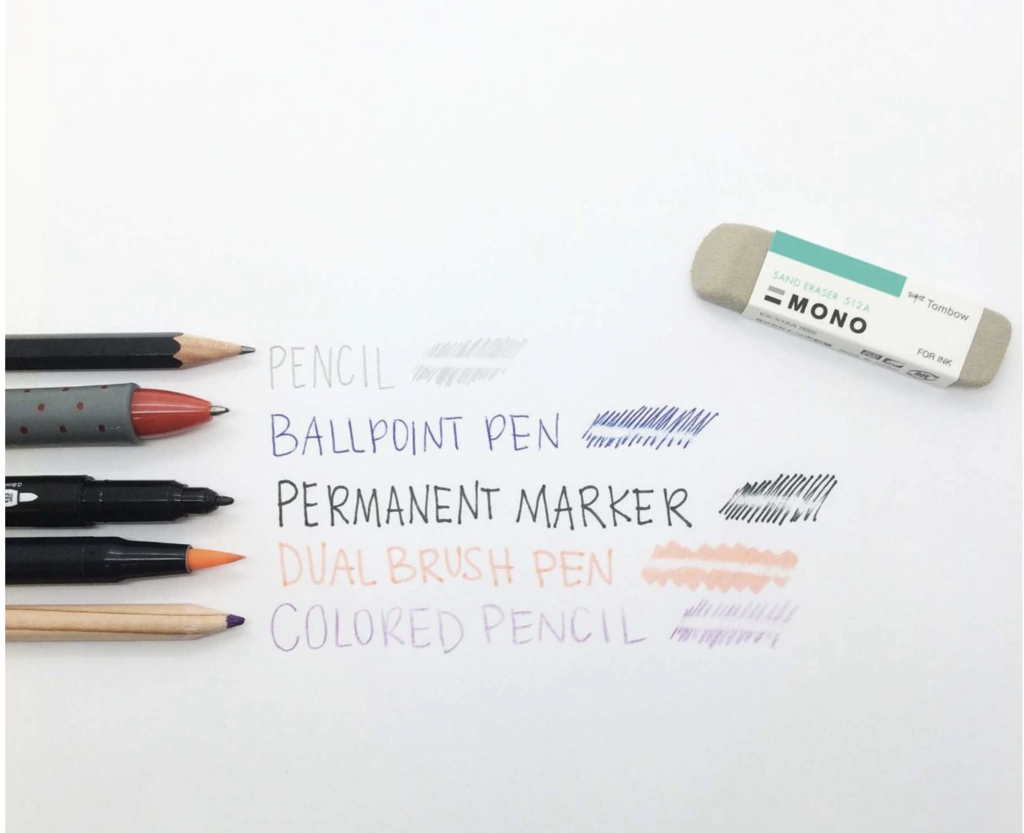 SAND ERASER 512A
Tombow
MONO
FOR INK
PENCIL
BALLPOINT PEN
PERMANENT MARKER
DUAL BRUSH PEN
COLORED PENCIL